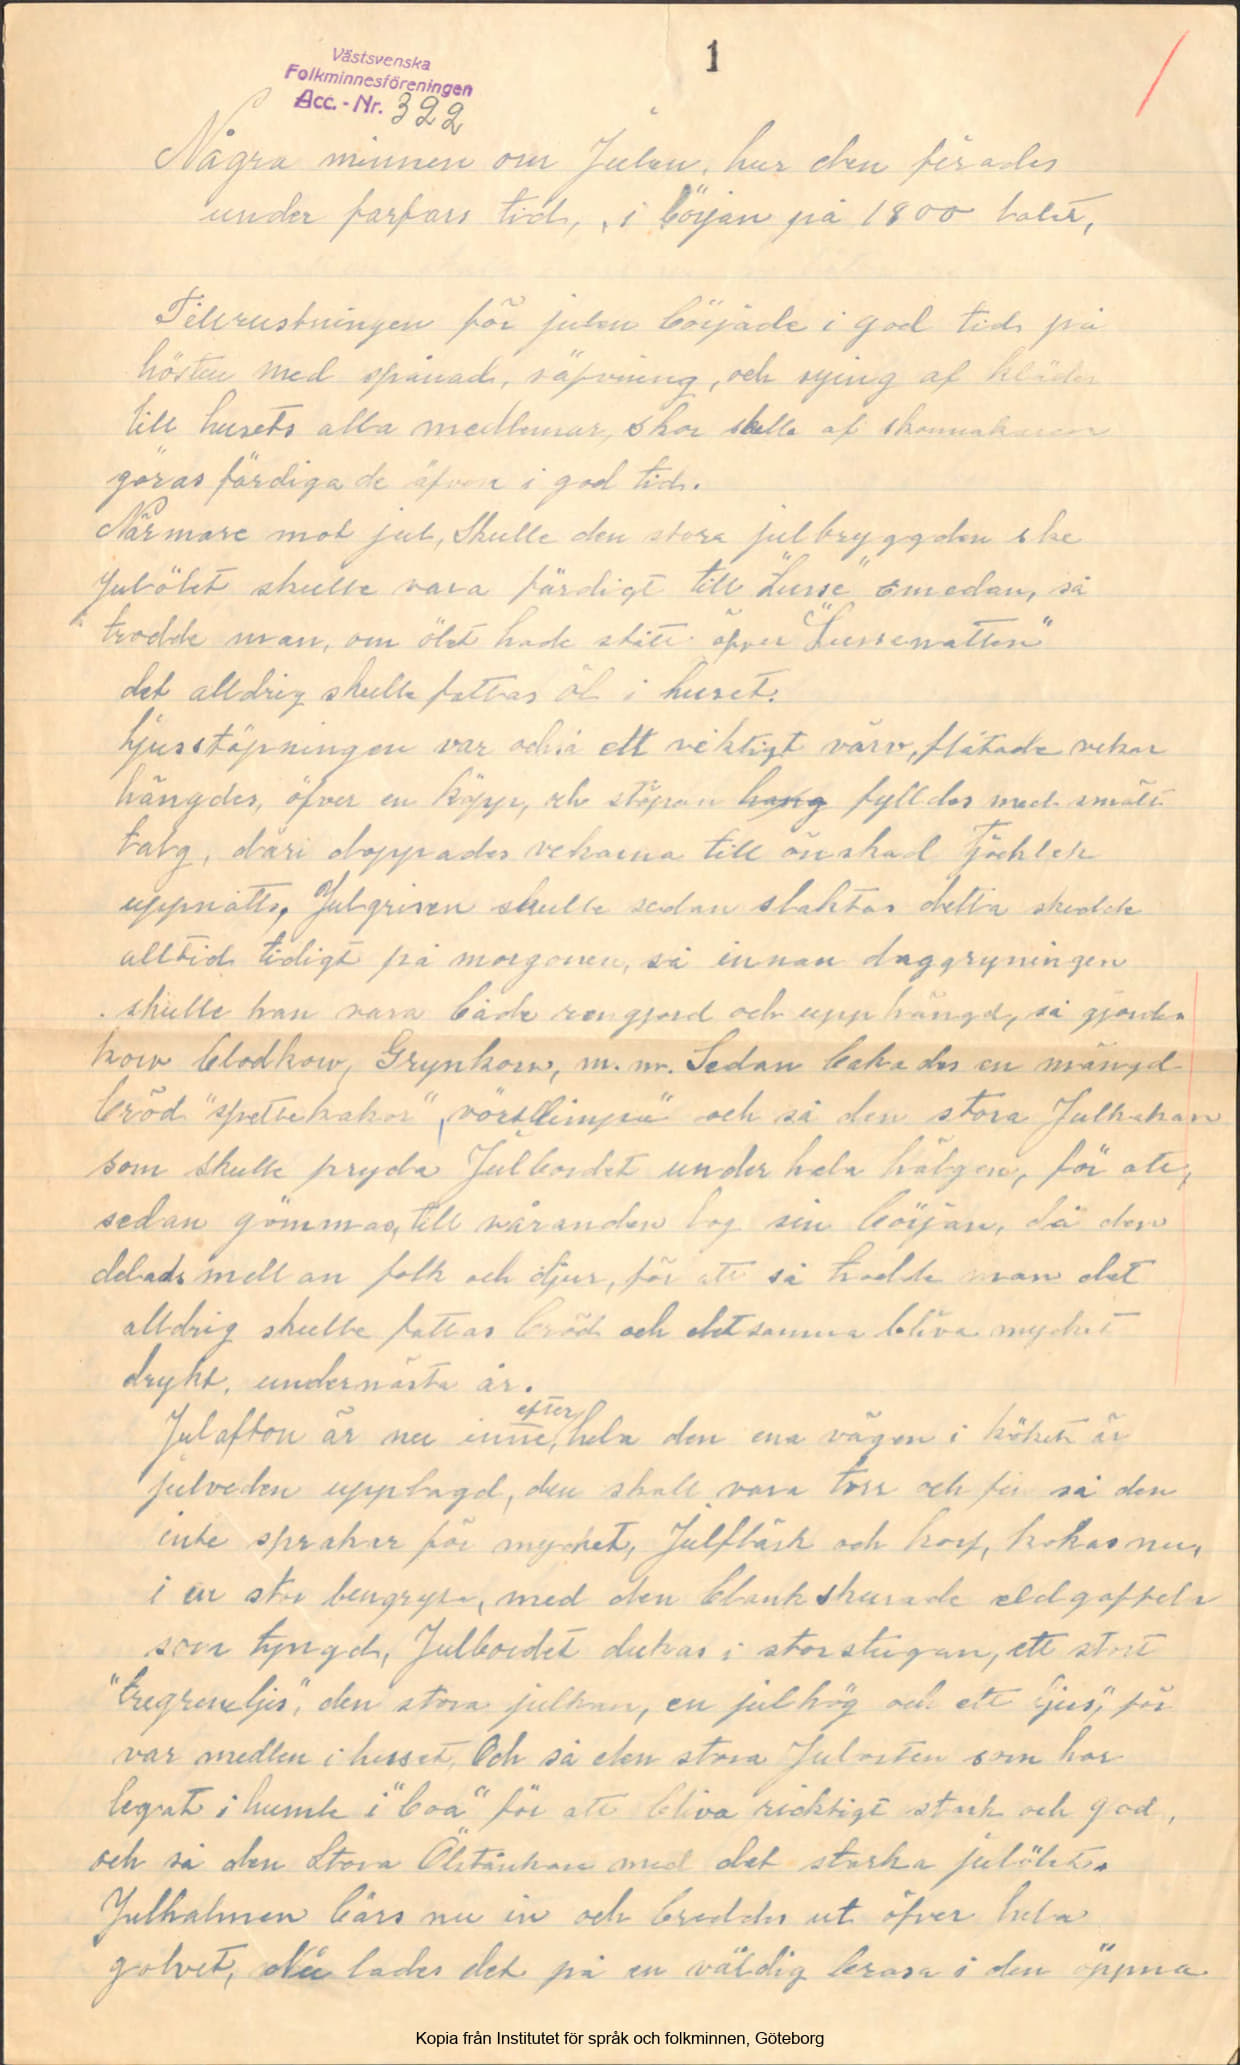 1
Västsvenska
Folkminnesföreningen
Acc. - Nr. 322
Några minnen om Julen, hur den firades
under farfars tid, i början på 1800 talet,
Tillrustningen för julen började i god tid på
hösten med spånad, väfvning, och sying af kläder
till husets alla medlemar, skor skulle af skomakaren
göras färdiga de äfven i god tid.
Närmare mot jul, skulle den stora julbryggden ske
Julölet skulle vara färdigt till "Lusse" emedan, så
trodde man, om ölet hade stått öfver "Lussenatten"
det alldrig skulle fattas öl i huset.
Ljusstöpningen var också ett viktigt värv, flätade vekar
hängdes, öfver en käpp, och stöpan hang fylldes med smält
talg, däri doppades vekarna till önskad tjocklek
uppnåtts, Julgrisen skulle sedan slaktas detta skedde
alltid tidigt på morgonen, så innan daggryningen
skulle han vara både rengjord och upphängd, så gjordes
korv blodkorv, Grynkorv, m. m. Sedan bakades en mängd
bröd "spettekakor", "vörtlimpa" och så den stora Julkakan
som skulle pryda Julbordet under hela hälgen, för att,
sedan gömmas, till våranden tog sin början, då den
delads mellan folk och djur, för att så trodde man det
alldrig skulle fattas bröd och detsamma bliva mycket
drykt, undernästa år.
Julafton är nu inne, efter hela den ena vägen i köket är
julveden upplagd, den skall vara torr och fin så den
inte sprakar för mycket, Julfläsk och korf, kokas nu,
i en stor lengryta, med den blankskurade eldgaffeln
som tyngd, Julbordet dukas i storstugan, ett stort
"tregrenljus", den stora julkan, en julhög och ett ljus, för
var medlem i husset, Och så den stora Julosten som har
legat i humle i "boa" för att bliva ricktigt stark och god,
och så den stora Ölstånkan med det starka julölet.
Julhalmen bärs nu in och breddes ut öfver hela
golvet, Nu lades det på en väldig brasa i den öppna
Kopia från Institutet för språk och folkminnen, Göteborg